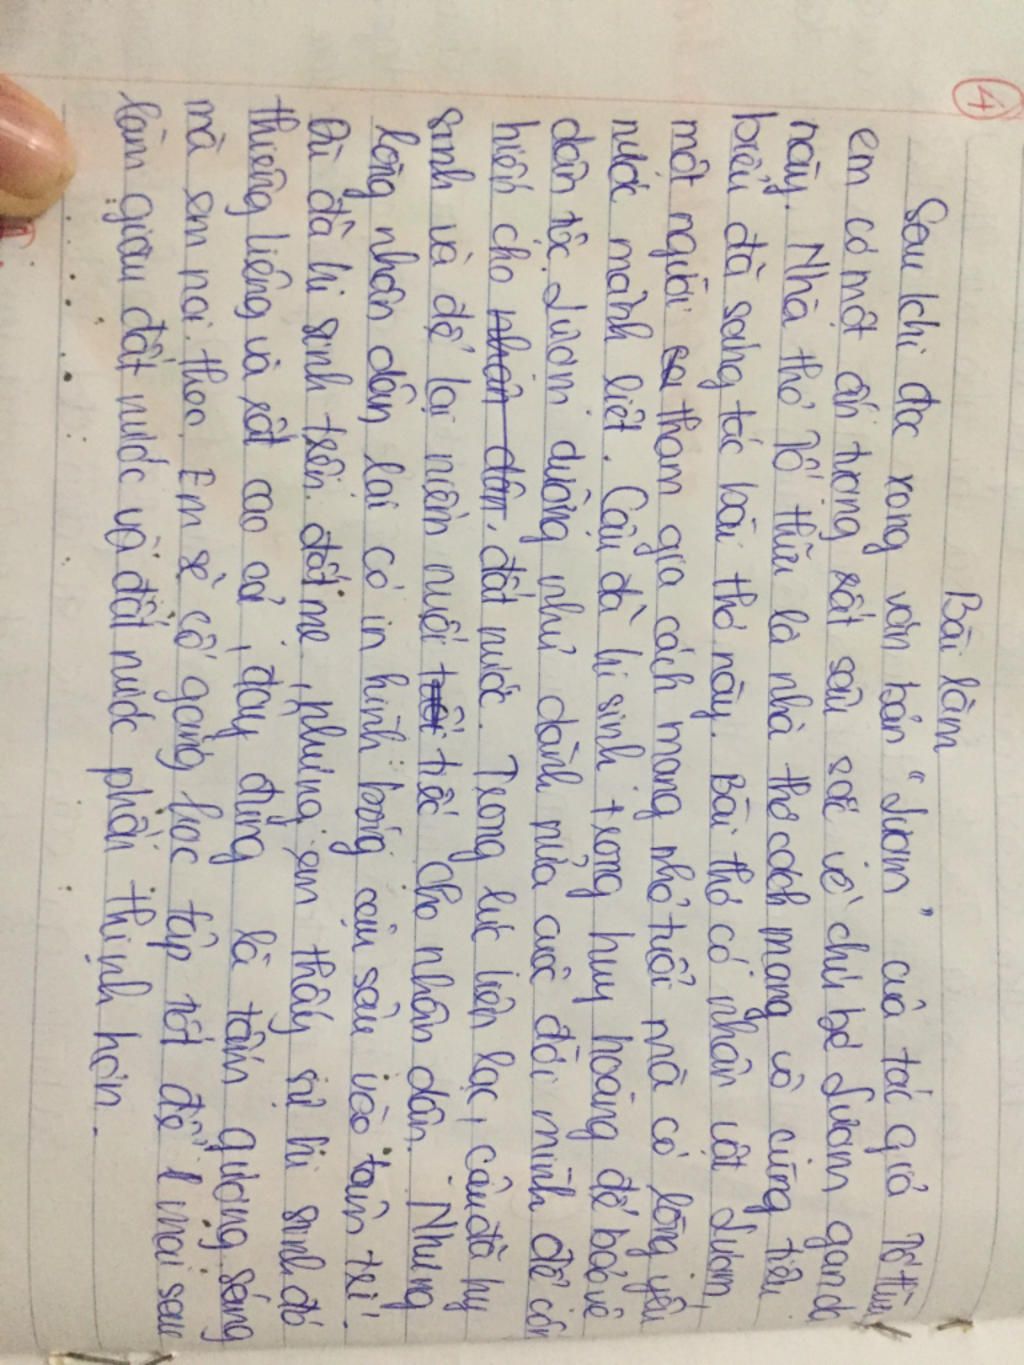 4
Bài làm
Sau khi đọc xong văn bản "Lượm" của tác giả Tố Hữu
em có một ấn tượng rất sâu sắc về chú bé Lượm gan dạ
này. Nhà thơ Tố Hữu là nhà thơ cách mạng vô cùng tiêu
biểu đã sáng tác bài thơ này. Bài thơ có nhân vật Lượm,
một người tham gia cách mạng nhỏ tuổi mà có lòng yêu
nước mãnh liệt. Cậu đã hi sinh trong huy hoàng để bảo vệ
dân tộc. Lượm dường như dành nửa cuộc đời mình để cốn
hiến cho nhân dân, đất nước. Trong lúc liên lạc, cậu đã hy
sinh và để lại niềm nuối tiếc cho nhân dân. Nhưng
lòng nhân dân lại có in hình bóng cậu sâu vào tâm trí!
Dù đã hi sinh trên đất mẹ, nhưng em thấy sự hi sinh đó
thiêng liêng và rất cao cả, đây đúng là tấm gương sáng
mà em noi theo. Em sẽ cố gắng học tập tốt để mai sau
làm giàu đất nước và đất nước phồn thịnh hơn.